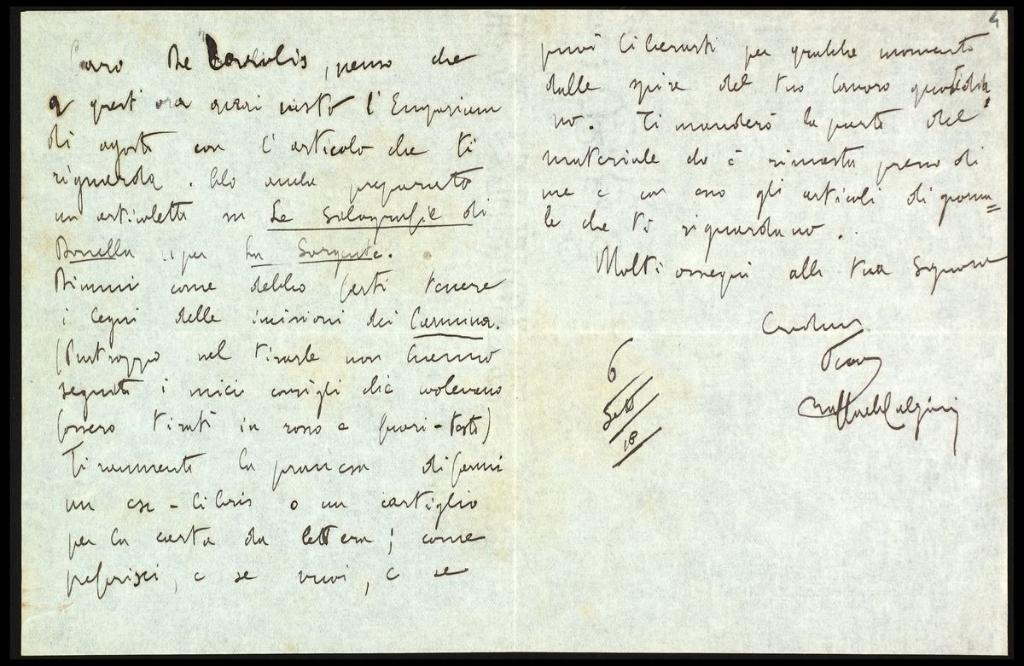 4
Caro De Carolis, penso che
a quest'ora avrai visto l'Emporium
di agosto con l'articolo che ti
riguarda. Ho anche preparato
un articoletto su Le Silografie di
Bonella .. per La Sorgente.
Dimmi come debbo farti tenere
i legni delle incisioni dei Carmina.
(Purtroppo nel tirarle non hanno
seguito i miei consigli che volevano
fossero tirati in rosso e fuori-testo)
Ti rammento la promessa di farmi
un ex-libris o un cartiglio
per la carta da lettera; come
preferisci, e se vuoi, e se
puoi liberarti per qualche momento
dalle spire del tuo lavoro quotidia=
no. Ti manderò la parte del
materiale che è rimasta presso di
me e con esso gli articoli di giorna=
le che ti riguardano.
Molti ossequi alla tua Signora
tuo
Raffaele Calzini
6
Sett
18